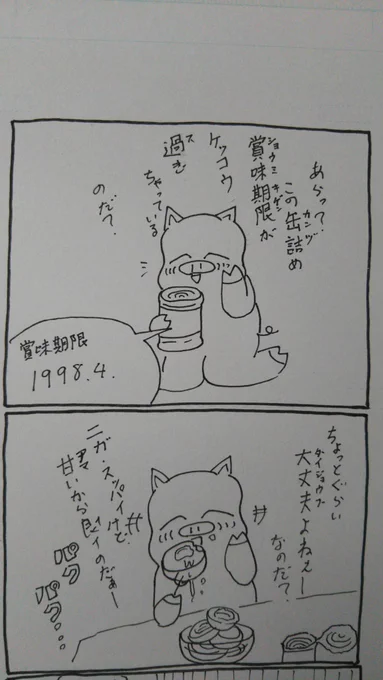 あらって?
この缶詰め
カンヅ
賞味期限が
ショウミキゲン
ケッコウ
過ぎ
ス
ちゃっている
のだて?
賞味期限
1998.4.
ちょっとぐらい
大丈夫よねぇー
ダイジョウブ
なのだて?
ニガ・スッパイけど、
甘いから良イのだぁー
アマ
パク
パク…